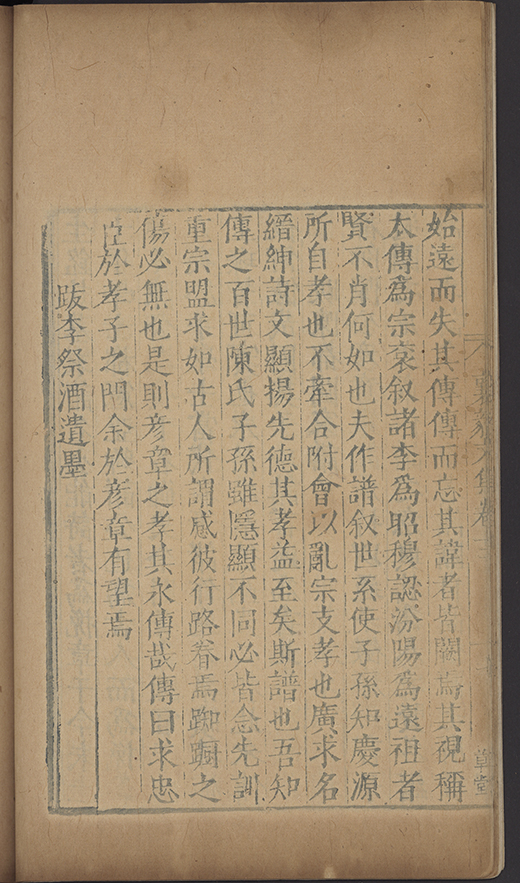 始遠而失其傳傳而忘其諱者皆闕焉其視稱
太傅爲宗衮叙諸李爲昭穆認汾陽爲遠祖者
賢不肖何如也夫作譜叙世系使子孫知慶源
所自孝也不牽合附會以亂宗支孝也廣求名
縉紳詩文顯揚先德其孝益至矣斯譜也吾知
傳之百世陳氏子孫雖隱顯不同必皆念先訓
重宗盟求如古人所謂感彼行路眷焉踟躕之
傷必無也是則彦章之孝其永傳哉傳曰求忠
臣於孝子之門余於彦章有望焉
跋李祭酒遺墨